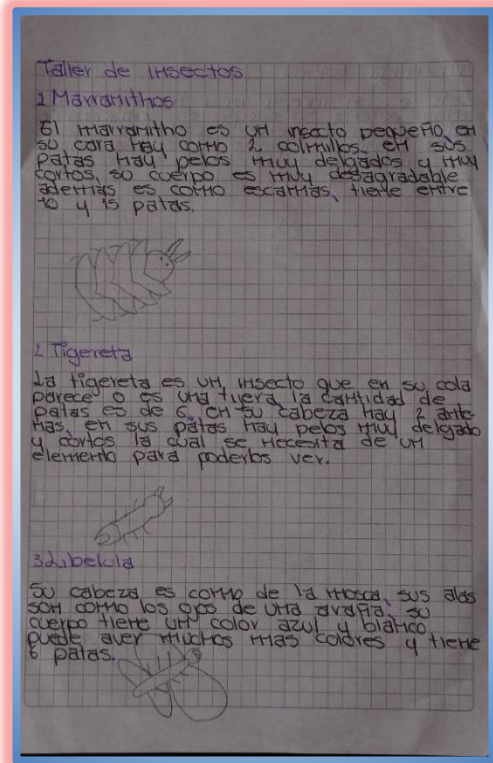 Taller de insectos
1 Marranithos
El marranitho es un insecto pequeño, en
su cara hay como 2 colmillos, en sus
patas hay pelos muy delgados y muy
cortos, su cuerpo es muy desagradable
ademas es como escamas, tiene entre
10 y 15 patas.
2 Tigereta
La tigereta es un insecto que en su cola
parece o es una tijera la cantidad de
patas es de 6, en su cabeza hay 2 ante
nas, en sus patas hay pelos muy delgado
y cortos la cual se necesita de un
elemento para poderlos ver.
3 Libelula
Su cabeza es como de la mosca, sus alas
son como los ojos de una araña, su
cuerpo tiene un color azul y blanco
puede aver muchos mas colores y tiene
6 patas.